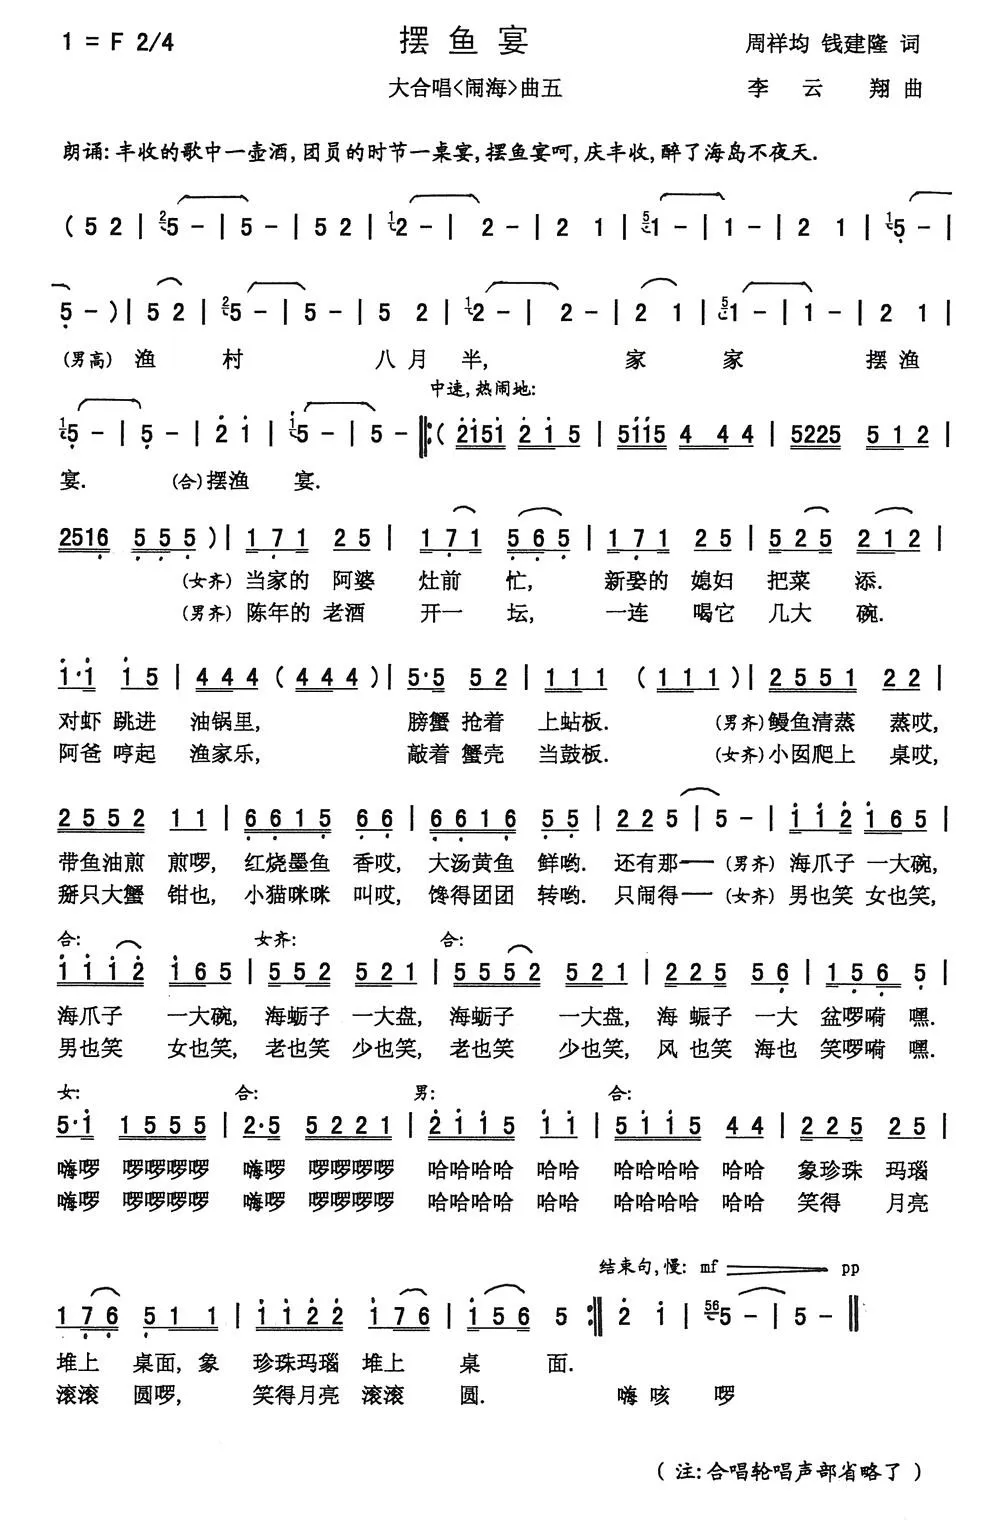 1 = F 2/4
摆 鱼 宴
周祥均 钱建隆 词
大合唱<闹海>曲五
李 云 翔 曲
朗诵:丰收的歌中一壶酒,团员的时节一桌宴,摆鱼宴呵,庆丰收,醉了海岛不夜天.
( 5 2 | 5 - | 5 - | 5 2 | 2 - | 2 - | 2 1 | 1 - | 1 - | 2 1 | 5 - |
5 - ) | 5 2 | 5 - | 5 - | 5 2 | 2 - | 2 - | 2 1 | 1 - | 1 - | 2 1 |
(男高) 渔 村 八 月 半, 家 家 摆 渔
中速,热闹地:
5 - | 5 - | 2 1 | 5 - | 5 - ‖: ( 2151 2 1 5 | 5115 4 4 4 | 5225 5 1 2 |
宴. (合)摆渔 宴.
2516 5 5 5 ) | 1 7 1 2 5 | 1 7 1 5 6 5 | 1 7 1 2 5 | 5 2 5 2 1 2 |
(女齐) 当家的 阿婆 灶前 忙, 新娶的 媳妇 把菜 添.
(男齐) 陈年的 老酒 开一 坛, 一连 喝它 几大 碗.
1·1 1 5 | 4 4 4 ( 4 4 4 ) | 5·5 5 2 | 1 1 1 ( 1 1 1 ) | 2 5 5 1 2 2 |
对虾 跳进 油锅里, 膀蟹 抢着 上蛄板. (男齐) 鳗鱼清蒸 蒸哎,
阿爸 哼起 渔家乐, 敲着 蟹壳 当鼓板. (女齐) 小囡爬上 桌哎,
2 5 5 2 1 1 | 6 6 1 5 6 6 | 6 6 1 6 5 5 | 2 2 5 | 5 - | 1 1 2 1 6 5 |
带鱼油煎 煎啰, 红烧墨鱼 香哎, 大汤黄鱼 鲜哟. 还有那— (男齐) 海爪子 一大碗,
掰只大蟹 钳也, 小猫咪咪 叫哎, 馋得团团 转哟. 只闹得— (女齐) 男也笑 女也笑,
合: 女齐: 合:
1 1 1 2 1 6 5 | 5 5 2 5 2 1 | 5 5 5 2 5 2 1 | 2 2 5 5 6 | 1 5 6 5 |
海爪子 一大碗, 海蛎子 一大盘, 海蛎子 一大盘, 海 蜄子 一大 盆啰嗬 嘿.
男也笑 女也笑, 老也笑 少也笑, 老也笑 少也笑, 风 也笑 海也 笑啰嗬 嘿.
女: 合: 男: 合:
5·1 1 5 5 5 | 2·5 5 2 2 1 | 2 1 1 5 1 1 | 5 1 1 5 4 4 | 2 2 5 2 5 |
嗨啰 啰啰啰啰 嗨啰 啰啰啰啰 哈哈哈哈 哈哈 哈哈哈哈 哈哈 象珍珠 玛瑙
嗨啰 啰啰啰啰 嗨啰 啰啰啰啰 哈哈哈哈 哈哈 哈哈哈哈 哈哈 笑得 月亮
结束句,慢: mf pp
1 7 6 5 1 1 | 1 1 2 2 1 7 6 | 1 5 6 5 :‖ 2 1 | 5 - | 5 - ‖
堆上 桌面, 象 珍珠玛瑙 堆上 桌 面.
滚滚 圆啰, 笑得月亮 滚滚 圆. 嗨 咳 啰
( 注:合唱轮唱声部省略了 )